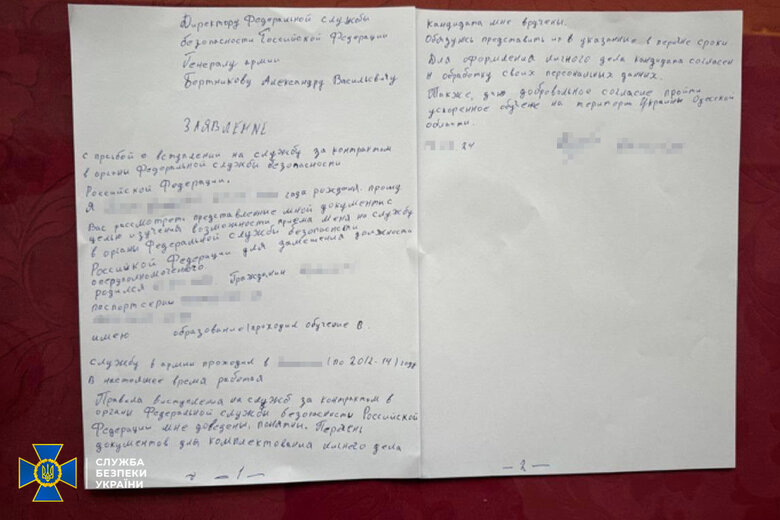 Директору Федеральной службы
безопасности Российской Федерации
Генералу армии
Бортникову Александру Васильевичу
ЗАЯВЛЕНИЕ
с просьбой о вступлении на службу за контрактом
в органы Федеральной службы безопасности
Российской Федерации.
Я года рождения, прошу
Вас рассмотреть представление мной документы с
целью изучения возможности приёма меня на службу
в органы Федеральной службы безопасности
Российкой Федерации для замешения должности
оперуполномоченого.
родился Гражданин
паспорт серии
имею образование/проходил обучение в
службу в армии проходил в (по 2012-14) году
В настоящее время работая
Правила виступления на служб за контрактом в
органы Федеральной службы безопасность Российской
Федерации мне доведены, понятны. Перечень
документов для комплектования личного дела
~ — 1 —
кандидата мне вручены.
Обязуюсь представить их в указанные в перечне сроки
Для оформления личного дела кандидата согласен
на обработку своих персональных данных.
Также, даю добровольное согласие пройти
ускоренное обучене на територт Украины Одесской
области.
24
— 2 —
СЛУЖБА
БЕЗПЕКИ
УКРАЇНИ